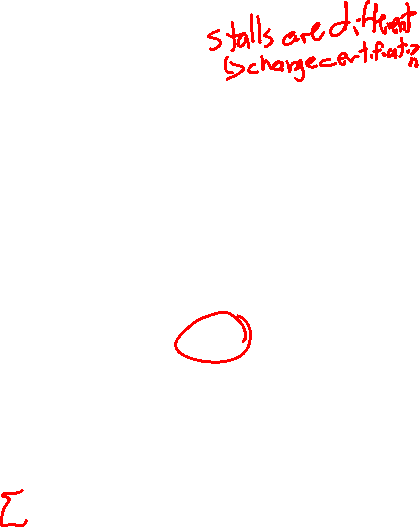 stalls are different
↳ charge certification
Σ